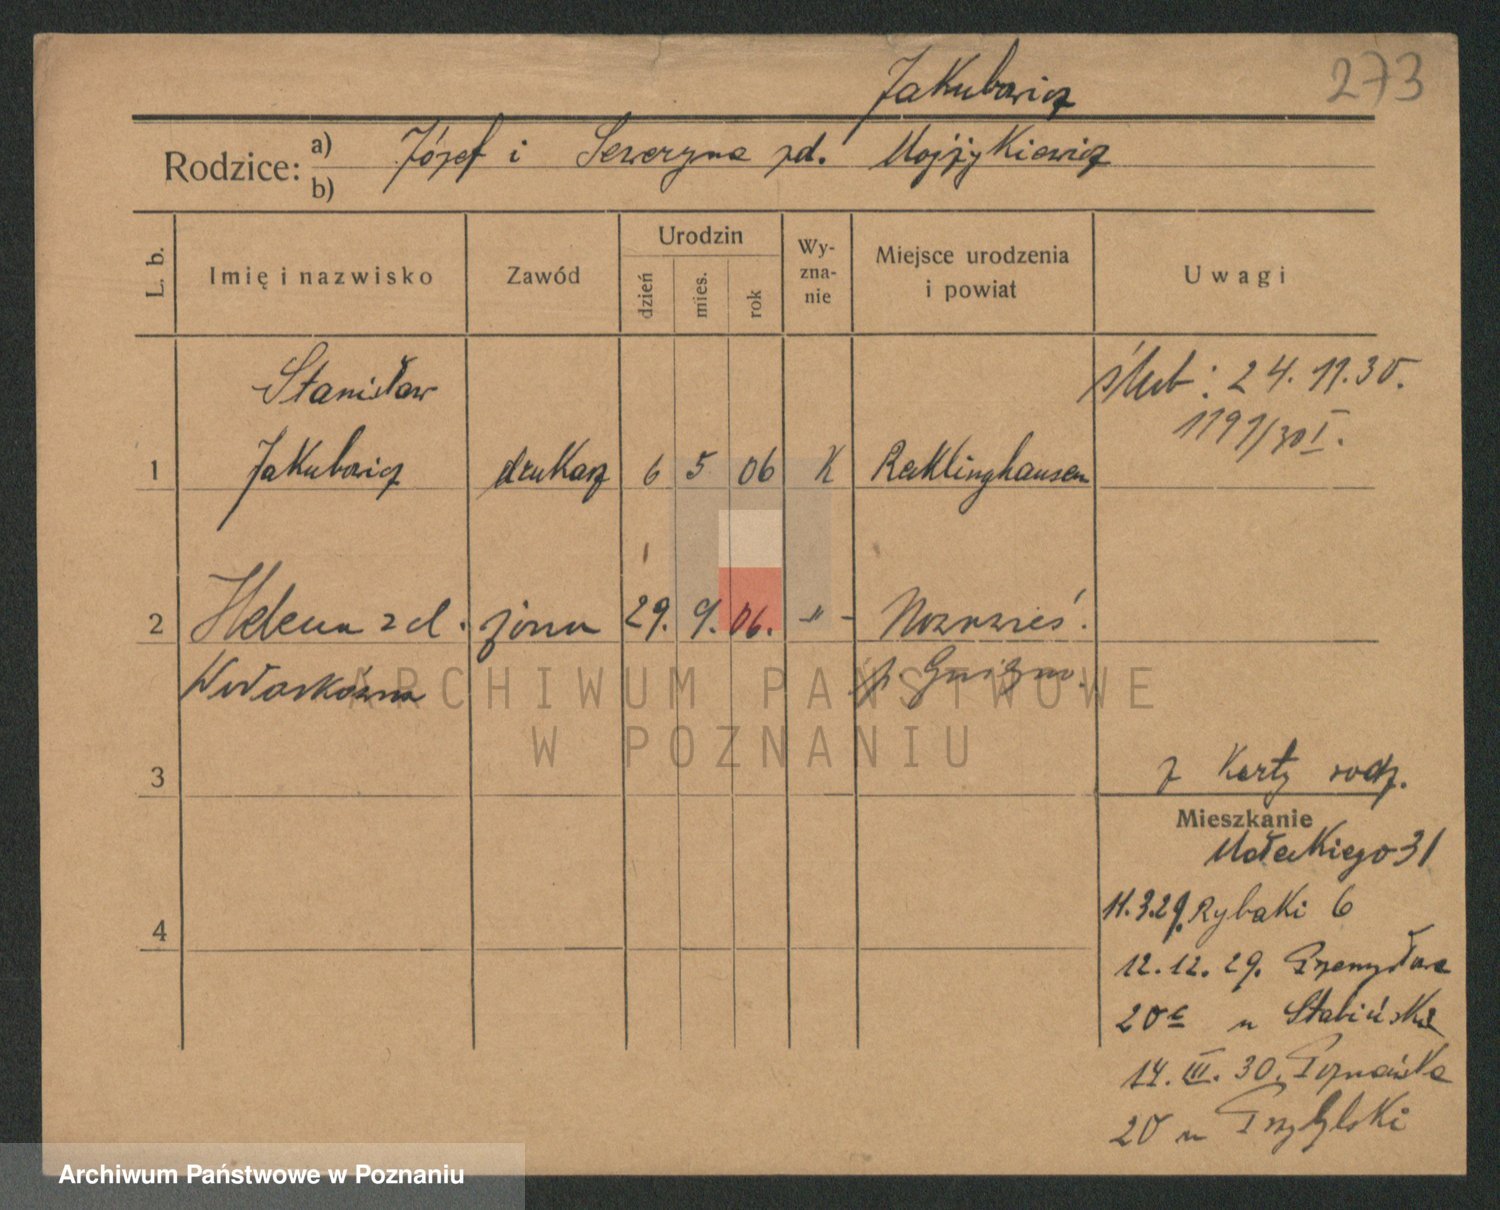 Jakubowicz
273
Rodzice: a) Józef i Seweryna zd. Mojżykiewicz
b)
L. b.
Imię i nazwisko
Zawód
Urodzin
dzień
mies.
rok
Wy-
zna-
nie
Miejsce urodzenia
i powiat
Uwagi
Stanisław
ślub: 24.11.30.
1191/30 I.
1 Jakubowicz drukarz 6 5 06 K Reklinghausen
2 Helena zd. żona 29. 9. 06. -"- Nowawieś.
p. Gniezno.
3
z Karty rodz.
Mieszkanie
Małeckiego 31
11.3.29. Rybaki 6
4
12.12.29. Przemysłowa
20c u Stabińska
14.III.30. Poznańska
20 u Przybylski
ARCHIWUM PAŃSTWOWE
W POZNANIU
Archiwum Państwowe w Poznaniu